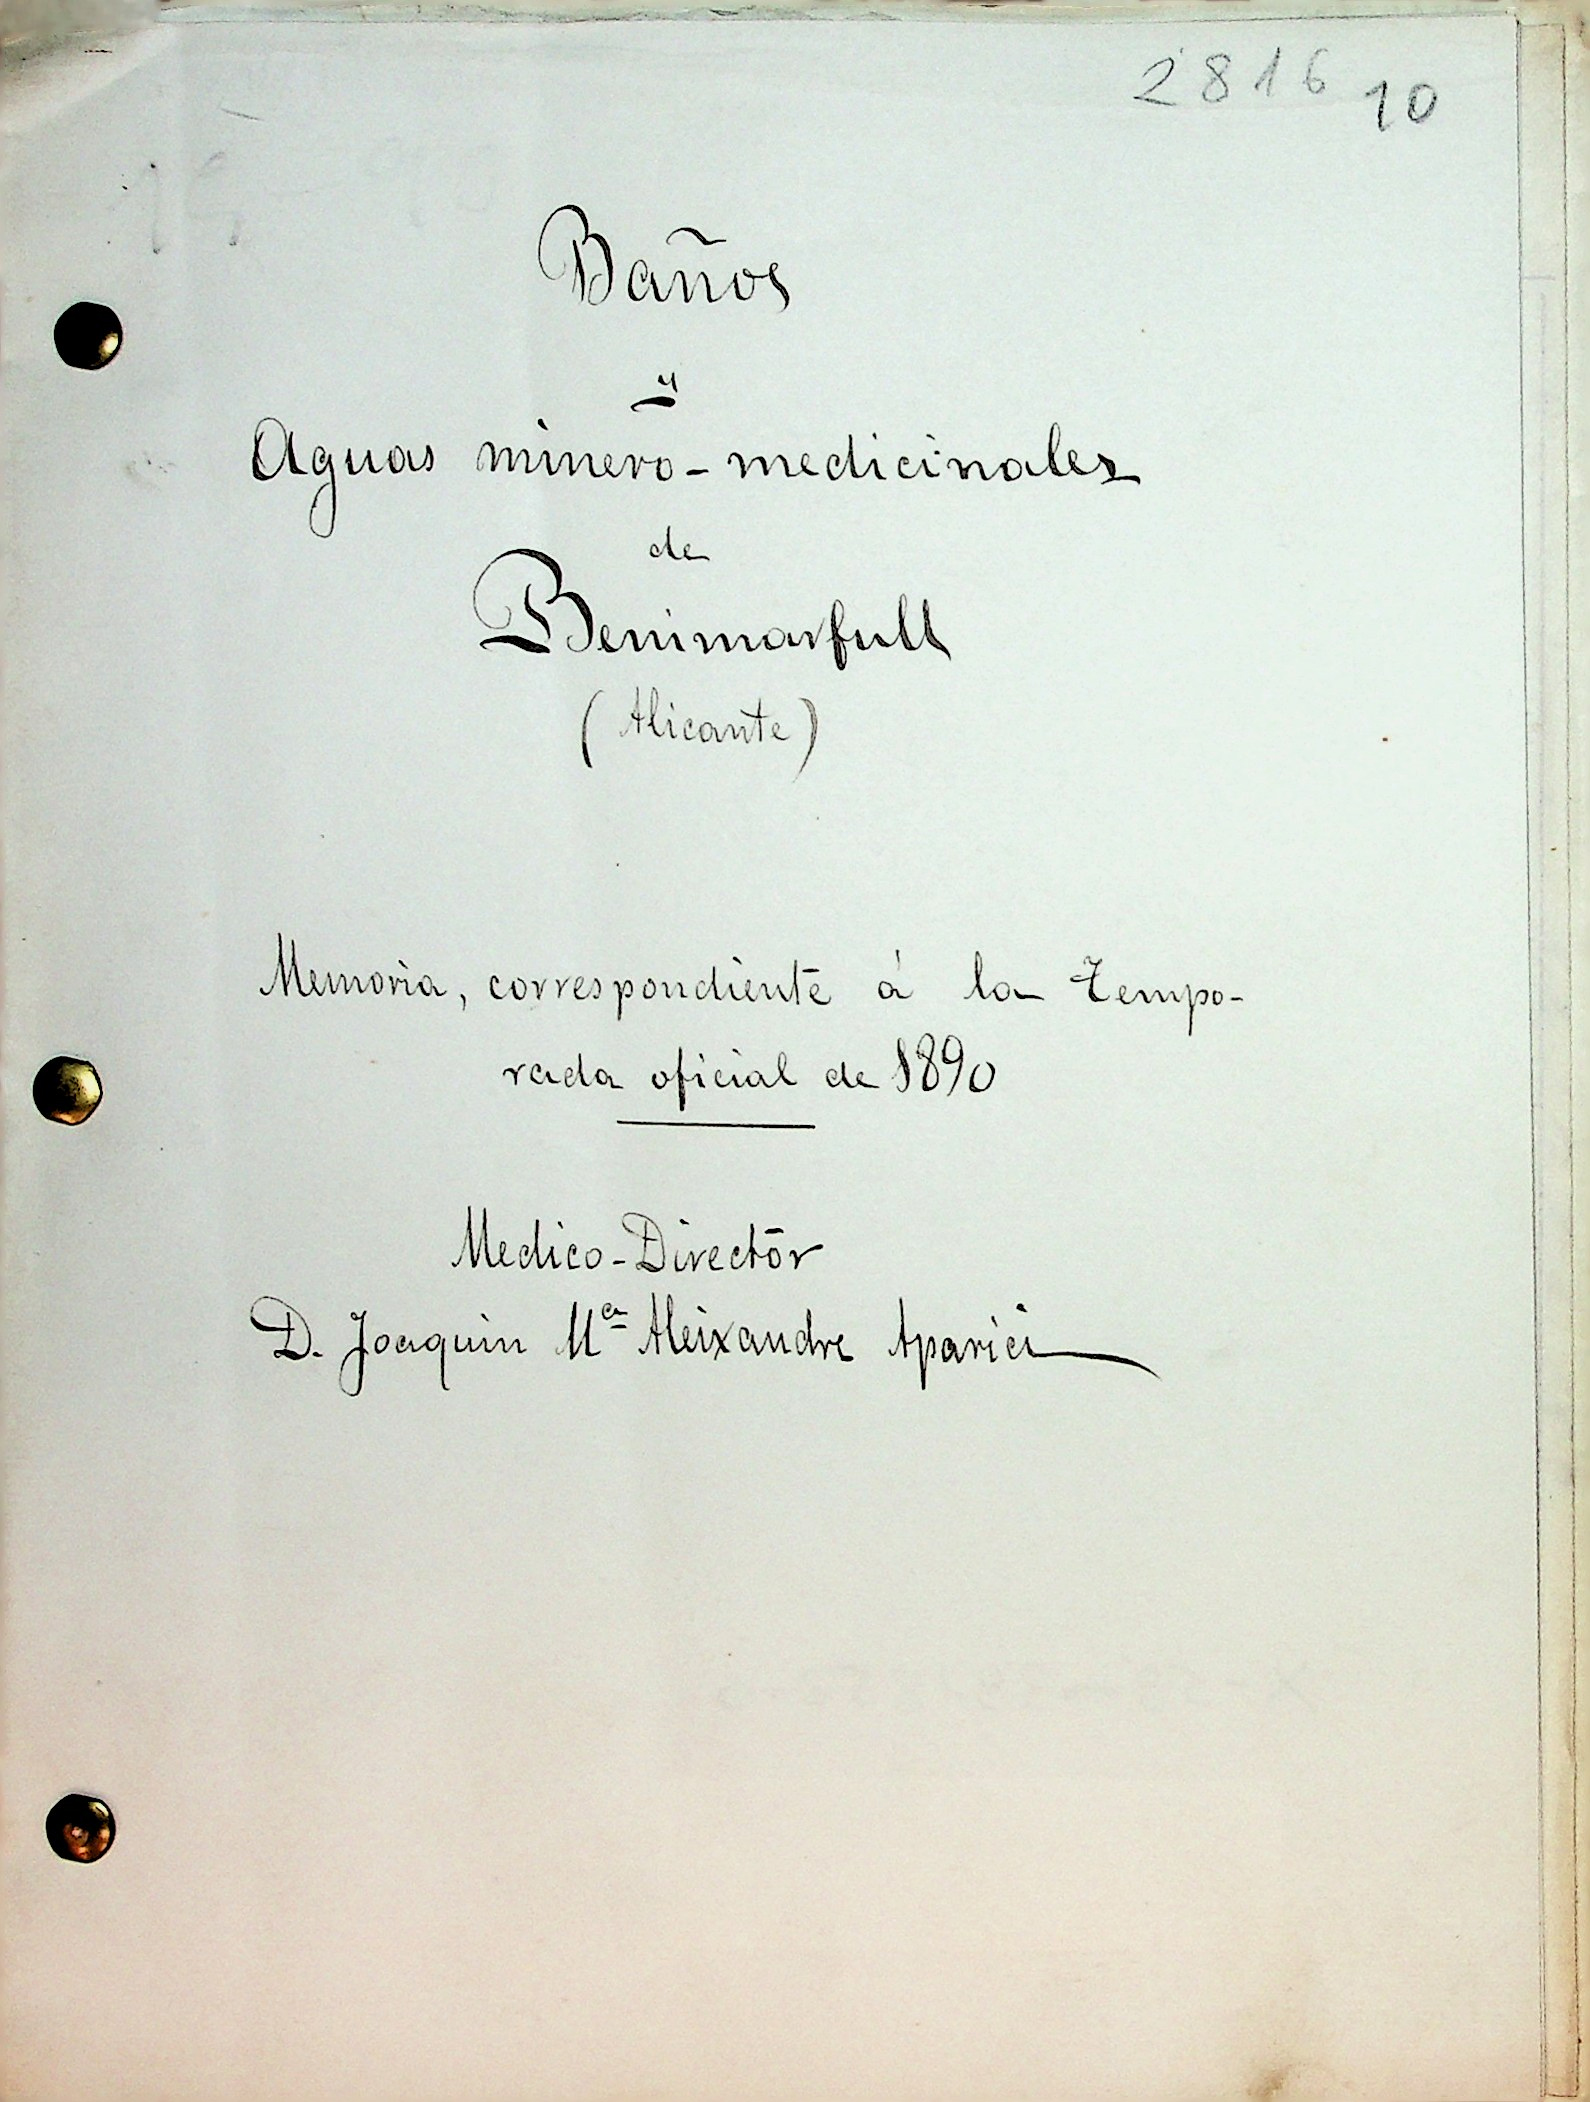 2816 10
Baños
y
Aguas minero-medicinales
de
Benimarfull
(Alicante)
Memoria, correspondiente á la tempo-
rada oficial de 1890
Medico-Director
D. Joaquin Mª Aleixandre Aparici